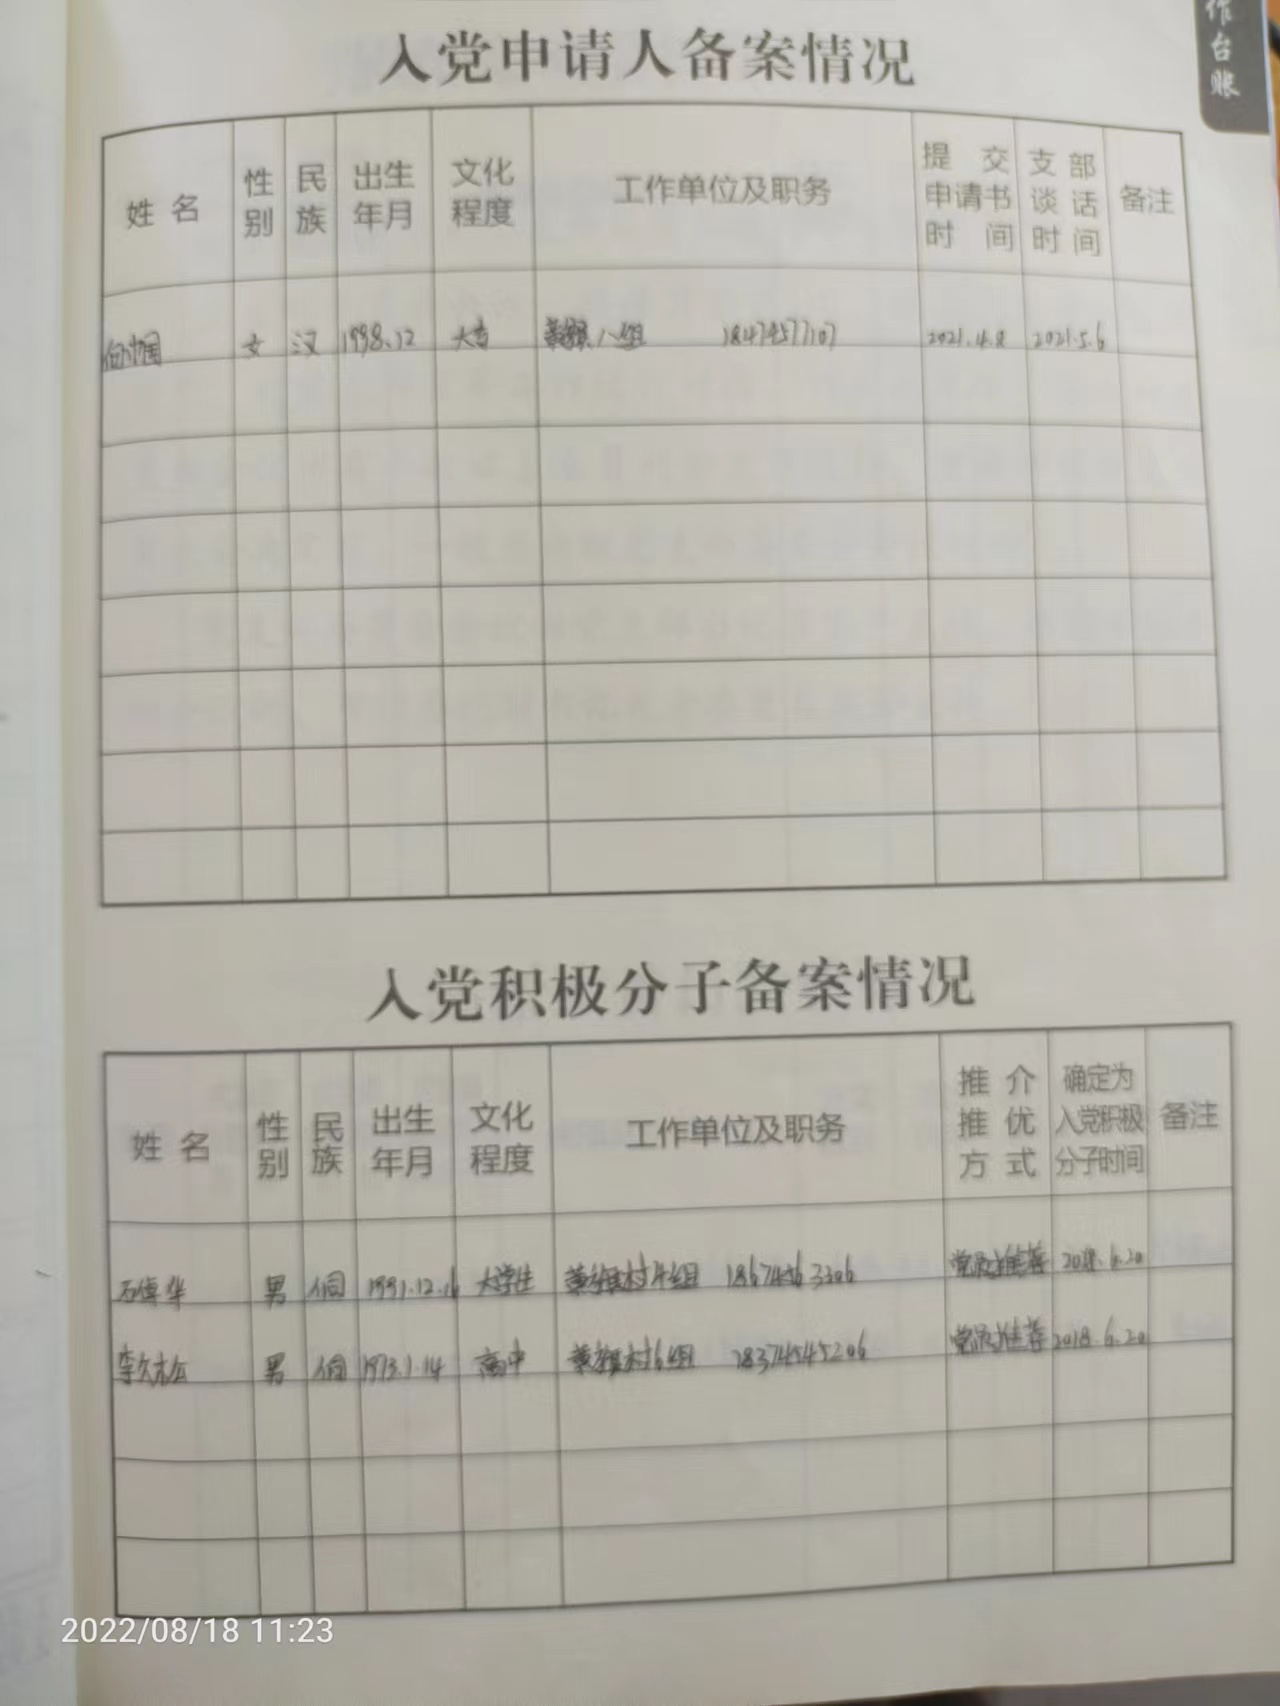 作台账
入党申请人备案情况
姓名 性别 民族 出生年月 文化程度 工作单位及职务 提交申请书时间 支部谈话时间 备注
女 汉 1998.12 大专 八组 18474577107 2021.4.8 2021.5.6
入党积极分子备案情况
姓名 性别 民族 出生年月 文化程度 工作单位及职务 推介推优方式 确定为入党积极分子时间 备注
男 侗 1991.12.16 大学生 党员推荐 2018.6.20
李久松 男 侗 1973.1.14 高中 18374545206 党员推荐 2018.6.20
2022/08/18 11:23